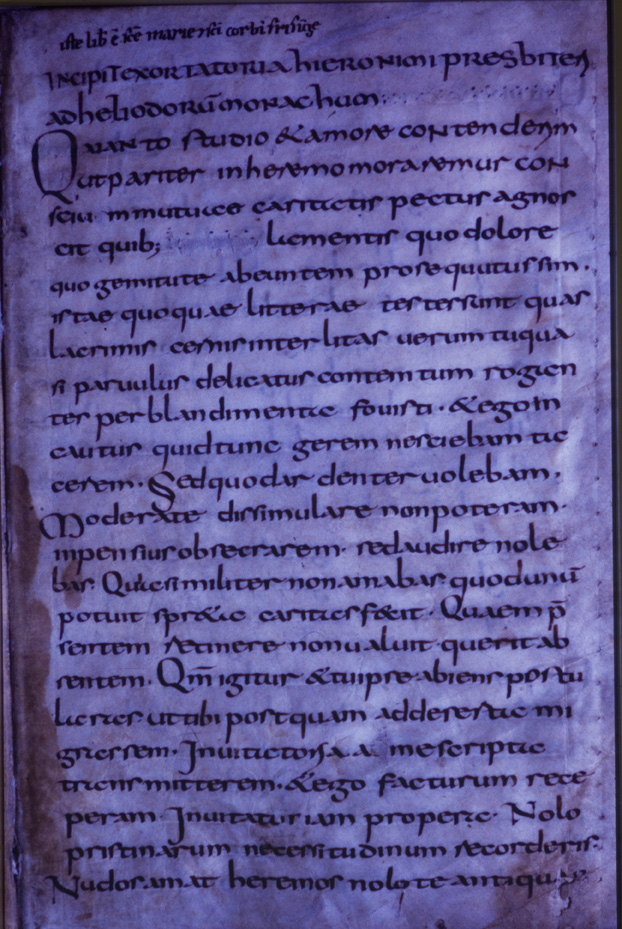 iste lib̄ ē sc̄e marie & sc̄i corbi frisinge
INCIPIT EXORTATORIA hIERONIMI PRESBITERI
AD hELIODORŪ MONAChUM.
QUANTO studio & amore contenderim
ut pariter in heremo moraremur con
scium mutuae caritatis pectus agnos
cit quib; lamentis quo dolore
quo gemitute abeuntem prosequutus sim.
istae quoquae litterae testes sunt quas
lacrimis cernis inter litas uerum tu qua
si paruulus delicatus contemtum rogien
tes per blandimenta fouisti. & ego in
cautus quid tunc gerem nesciebam ta
cerem. Sed quod ardenter uolebam.
Moderate dissimulare non poteram.
inpensius obsecrarem. sed audire nole
bas. Quia similiter non amabas quod unū
potuit spreta caritas fecit. Quaem p̄
sentem retinere non ualuit querit ab
sentem. Qm̄ igitur & tu ipse abiens postu
laras ut tibi postquam ad deserta mi
grassem. Inuitatoria a me scripta
transmitterem. & ego facturum rece
peram Inuitatur iam propera. Nolo
pristinarum necessitudinum recorderis.
Nudos amat heremos nolo te antiquae